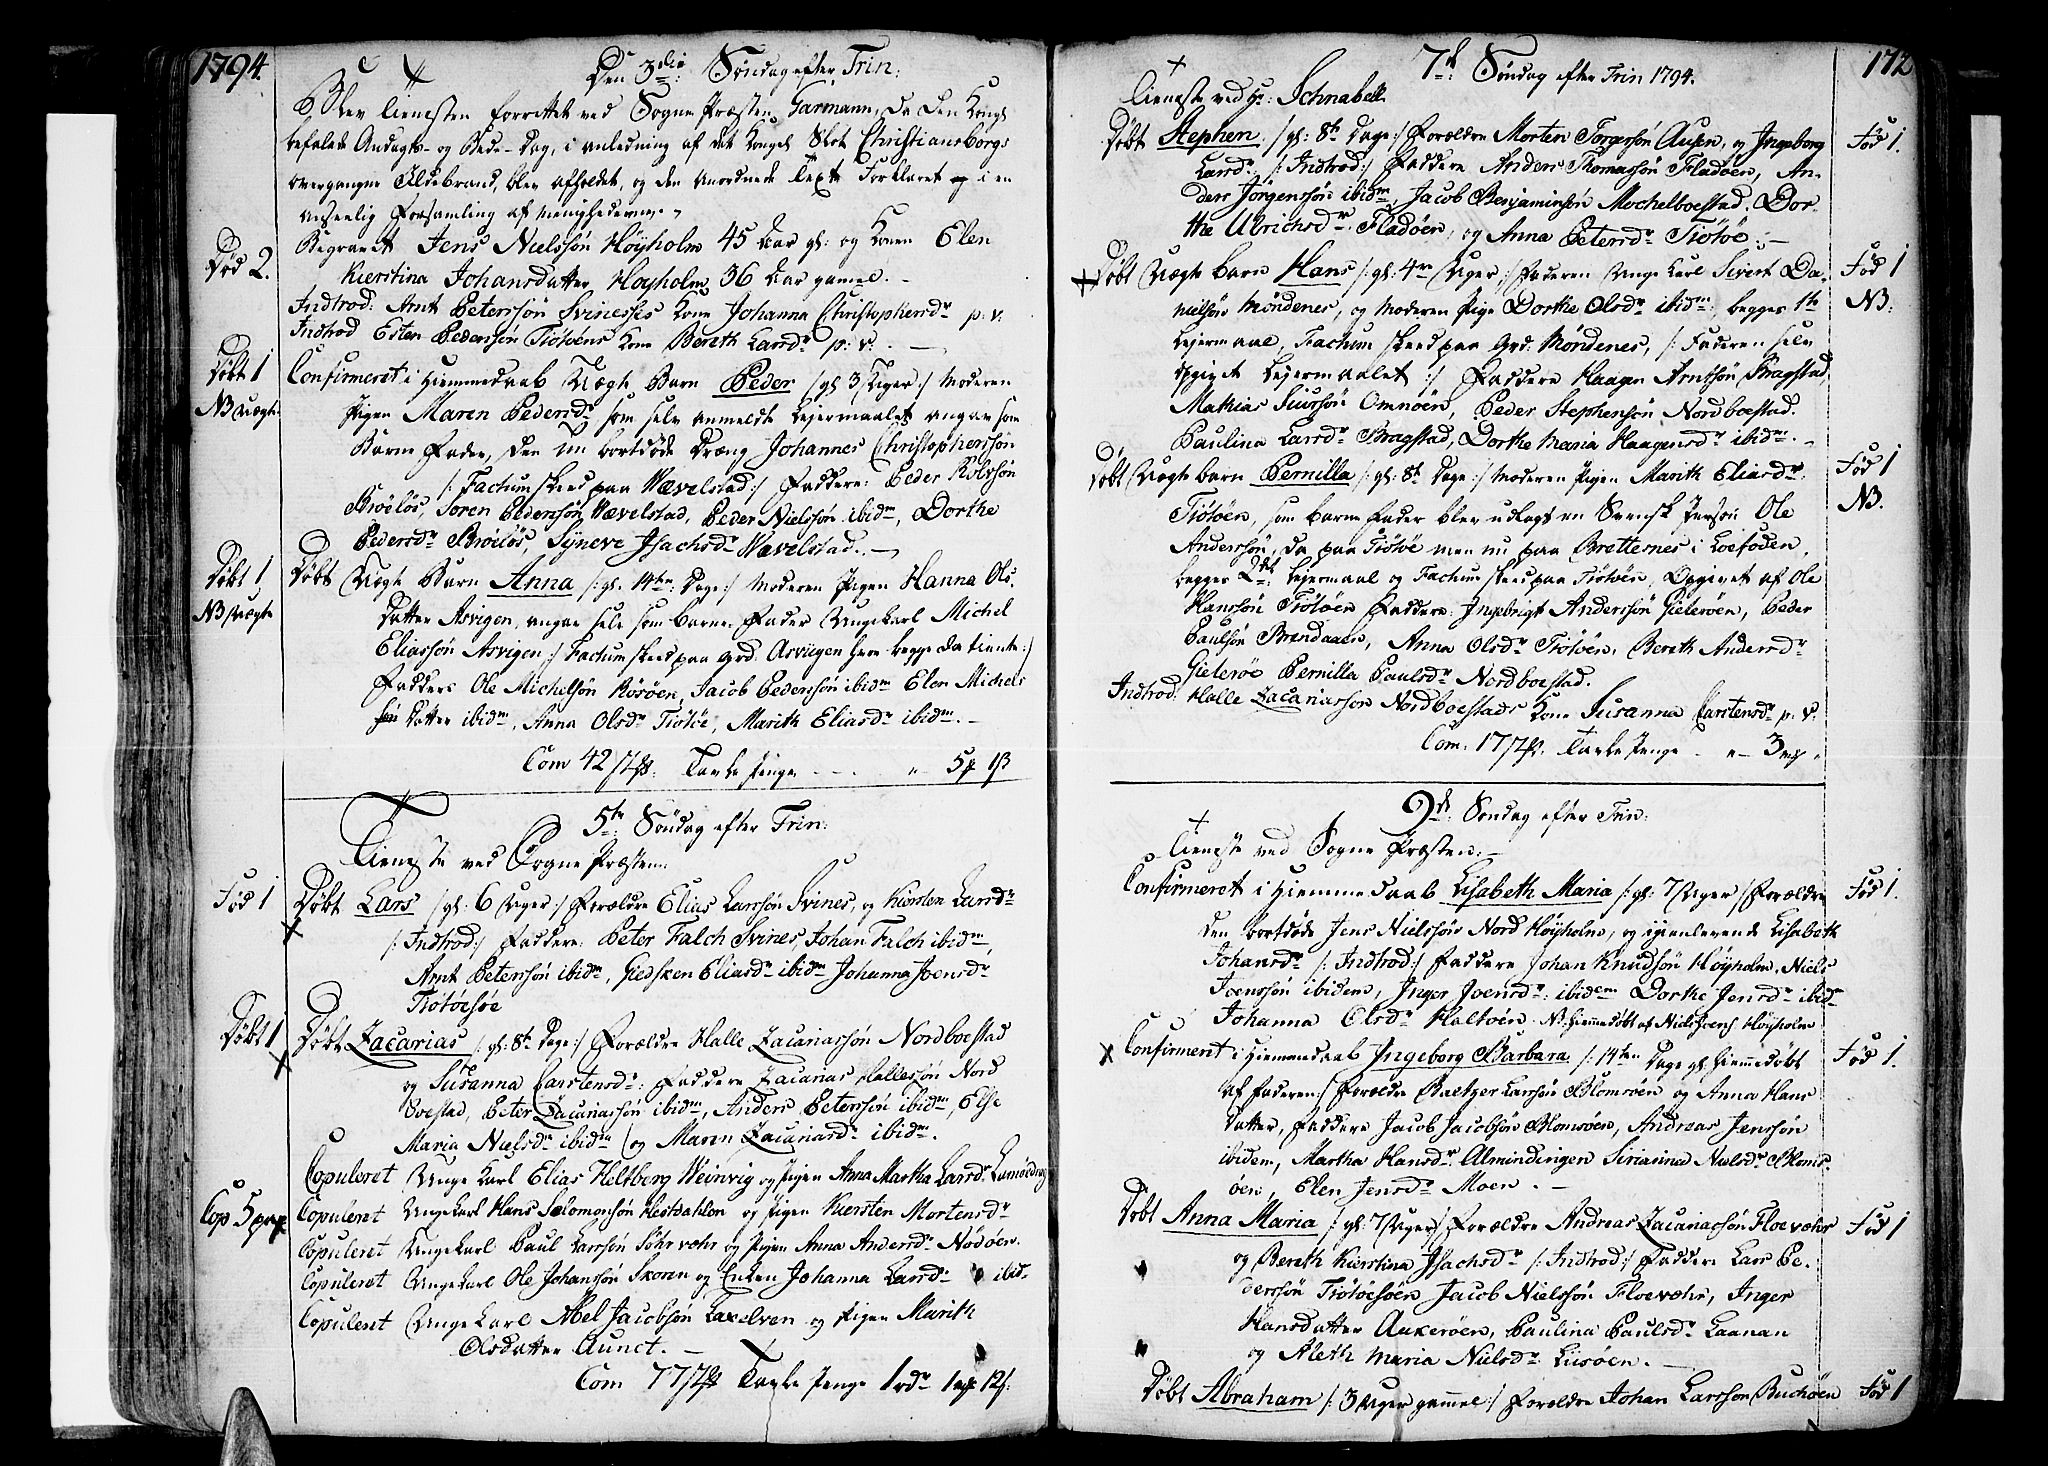 1794.
Den 3die Søndag efter Trin:
Blev Tienesten forrettet ved Sogne Præsten Garmann, da den Kongl
befalede Andagts- og Bede-Dag, i anledning af det Kongel Slot Christiansborgs
overgangne Ildebrand, blev afholdet, og den anordnede Text Forklaret i en
anseelig Forsamling af menigheden
Død 2.
Begravet Jens Nielssøn Høyholm 45 Aar gl: og Konen Elen
Kierstina Johansdatter Høyholm 36 Aar gammel.
Indtrod: Arnt Peterssøn Svinesses Kone Johanna Christophersdr p: v:
Indtrod Esten Pederssøn Tiøtøens Kone Bereth Larsdr p: v:
Døbt 1
NB Uægte
Confirmeret i Hiemmedaab Uægte Barn Peder /gl 3 Uger:/ Moderen
Pigen Maren Pedersdr som selv anmeldte Lejermaalet angav som
Barne Fader, den nu bortdøde Dreng Johannes Christopherssøn
/: Factum skeed paa Vævelstad:/ Faddere: Peder Rolvssøn
Broeløs, Søren Pederssøn Vævelstad, Peder Nielssøn ibidm, Dorthe
Pedersdr Broeløs, Syneve Isachsdr Vævelstad.
Døbt 1
NB Uægte
Døbt Uægte Barn Anna /: gl. 14ten Dage:/ Moderen Pigen Hanna Ols
Datter Asvigen, angav selv som Barne Fader Unge Karl Michel
Eliassøn Asvigen :/ Factum skeed paa Grd: Asvigen hvor begge da tiente:/
Faddere Ole Michelssøn Rosøen, Jacob Pederssøn ibidm Elen Michels
Datter ibidm, Anna Olsdr Tiøtøe, Marith Eliasdr ibidm.
Com 42 Tavle Penge - - - " 5 1ß
5te Søndag efter Trin:
Tieneste ved Sogne Præsten.
Fød 1
Døbt Lars /gl: 6 Uger:/ Forældre Elias Larssøn Svines, og Kiersten Larsdr
/: Indtrod:/ Faddere: Peter Falch Svines, Johan Falch ibidm,
Arnt Peterssøn ibidm, Giedsken Eliasdr ibidm Johanna Joensdr
Tiøtøesøe
Døbt 1
Døbt Zacarias /: gl: 8te Dage:/ Forældre Halle Zacariassøn Nordboestad
og Susanna Carstensdr: Faddere Zacarias Hallessøn Nord
boestad, Peter Zacariassøn ibidm, Anders Peterssøn ibidm, Else
Maria Nielsdr ibidm og Maren Zacariasdr ibidm.
Copuleret Unge Karl Elias Heltberg Weinvig og Pigen Anna Martha Larsdr
Cop 5 par
Copuleret Unge Karl Hans Solomonsøn Hestdahlen og Pigen Kiersten Mortensdr
Copuleret Unge Karl Paul Larssøn Søhrvæhr og Pigen Anna Andersdr Nodøen.
Copuleret Unge Karl Ole Johanssøn Skoren og Enken Johanna Larsdr ibid.
Copuleret Unge Karl Abel Jacobsøn Laxelven og Pigen Marith
Olsdatter Aunet.
Com 77 Tavle Penge 1 rdr 1 12ß.
172
7de Søndag efter Trin 1794.
Tieneste ved Hr: Schnabell
Døbt Stephen /: gl: 8te Dage:/ Forældre Morten Torgerssøn Ausen, og Ingeborg
Fød 1.
Larsdr: /: Indtrod:/ Faddere Anders Thomassøn Fladøen, An-
ders Jørgenssøn ibidm, Jacob Benjaminsøn Mochelboestad, Dor-
the Ulrichsdr Fladøen, og Anna Petersdr Tiøtøe.
Døbt Uægte Barn Hans /: gl: 4re Uger:/ Faderen Unge Karl Sivert Da-
Fød 1
NB:
nielsøn Mordenes, og Moderen Pige Dorthe Olsdr ibidm, begges 1te
Lejermaal, Factum skeed paa Grd: Mordenes, /: Faderen selv
opgivet Lejermaalet :/ Faddere Haagen Arntssøn Bragstad,
Mathias Siurssøn Omnøen, Peder Stephenssøn Nordboestad.
Paulina Larsdr Bragstad, Dorthe Maria Haagensdr ibidm.
Døbt Uægte Barn Pernilla /: gl: 8te Dage:/ Moderen Pigen Marith Eliasdr
Fød 1
NB.
Tiøtøen, som Barne Fader blev udlagt en Svensk Person Ole
Anderssøn, da paa Tiøtøe men nu paa Bretternes i Loefoden,
begges 2det Lejermaal og Factum skeed paa Tiøtøen, Opgivet af Ole
Hanssøn Tiøtøen Faddere: Ingebrigt Anderssøn Gieterøen, Peder
Paulssøn Brendaasen, Anna Olsdr Tiøtøen, Bereth Andersdr
Gieterøe Pernilla Paulsdr Nordboestad.
Indtrod: Halle Zacariassøn Nordboestads Kone Susanna Carstensdr p: v.
Com: 17 Tavle Penge - " - 3 mk "
9de Søndag efter Trin:
Tieneste ved Sogne Præsten.
Confirmeret i Hiemme Daab Lisabeth Maria /: gl: 7 Uger:/ Forældre
Fød 1.
den bortdøde Jens Nielssøn Nord Høyholm, og igienlevende Lisabeth
Johansdr /: Indtrod:/ Faddere Johan Knudssøn Høyholm, Niels
Joenssøn ibidem, Inger Joensdr: ibidem Dorthe Jensdr ibidm
Johanna Olsdr Haltøen NB. Hiemmedøbt af Niels Joens: Høyholm
Confirmeret i Hiemmedaab Ingeborg Barbara /: 14ten Dage gl. Hiemmedøbt
Fød 1.
af Faderen:/ Forældre Baltzer Larssøn Blomsøen og Anna Hans
Datter, Faddere Jacob Jacobsøn Blomsøen, Andreas Jenssøn
ibidem, Martha Hansdr Almindingen Sirianna Nielsdr Bloms-
øen, Elen Jensdr Moen.
Døbt Anna Maria /: gl: 7 Uger:/ Forældre Andreas Zacariassøn Floevæhr
Fød 1
og Bereth Kierstina Isachsdr /: Indtrod:/ Faddere Lars Pe-
derssøn Tiøtøesøen Jacob Nielssøn Floevæhr, Inger
Hansdatter Aukerøen, Paulina Paulsdr Laanan
og Aleth Maria Nielsdr: Lisøen.
Døbt Abraham /: 3 Uger gammel:/ Forældre Johan Larssøn Buchøen
Fød 1